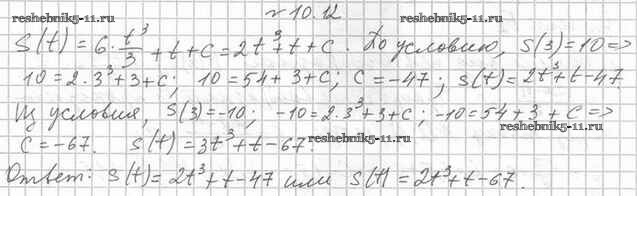 №10.12 reshebnik5-11.ru
reshebnik5-11.ru
S(t)=6·t³/3+t+C=2t³+t+C. По условию, S(3)=10=>
10=2·3³+3+C; 10=54+3+C; C=-47; S(t)=2t³+t-47.
Из условия, S(3)=-10; -10=2·3³+3+C; -10=54+3+C=>
reshebnik5-11.ru
C=-67. S(t)=3t³+t-67. reshebnik5-11.ru
Ответ: S(t)=2t³+t-47 или S(t)=2t³+t-67.